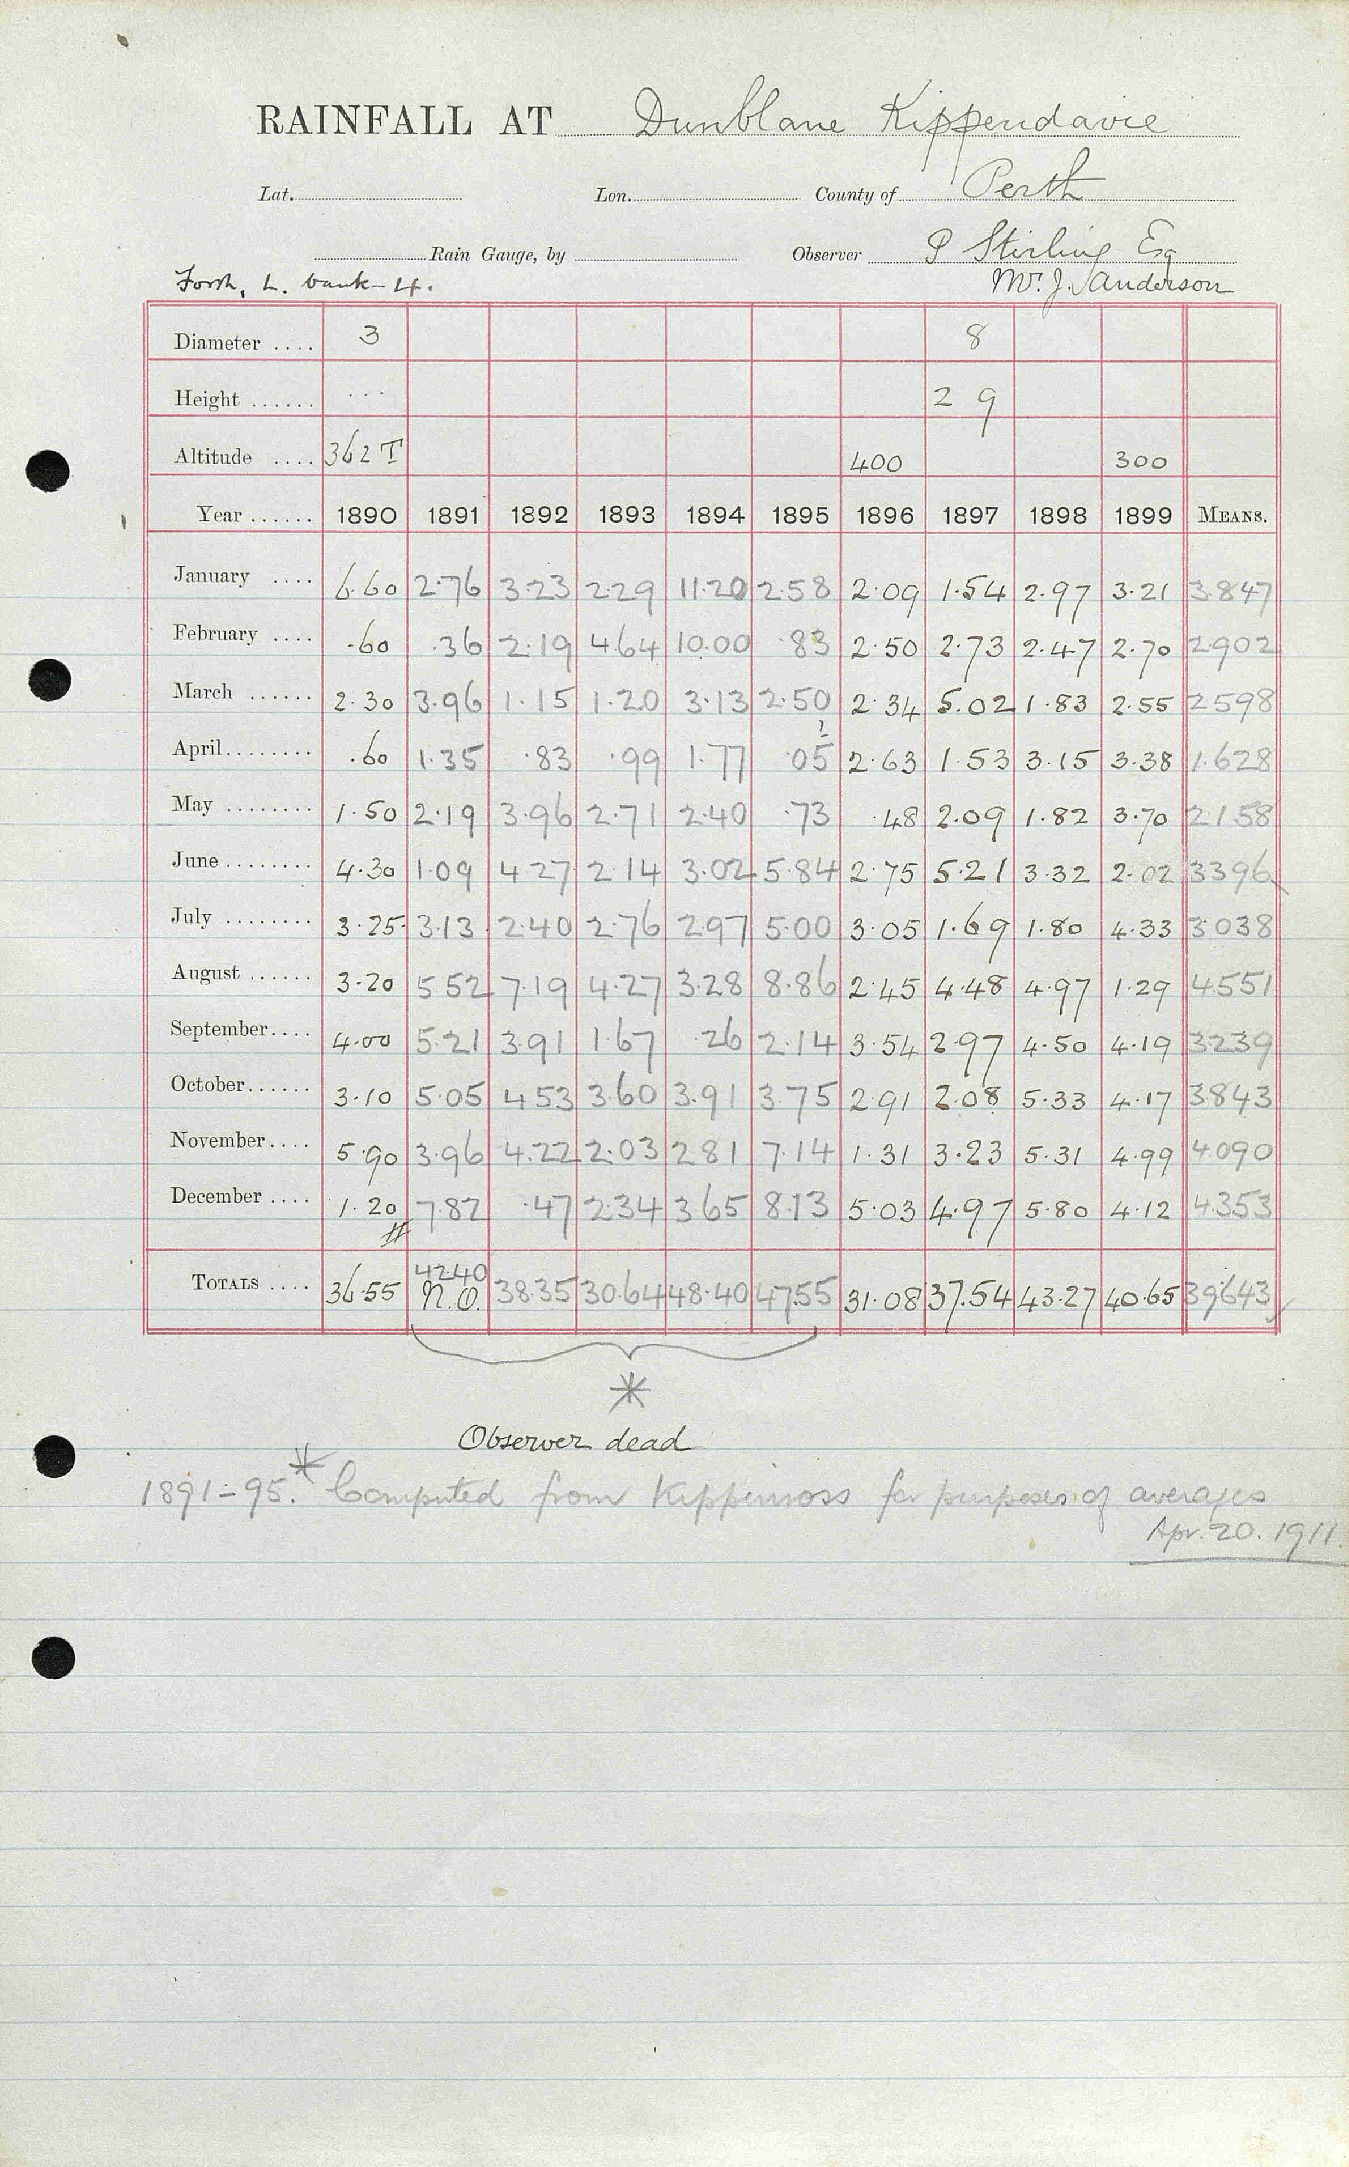 RAINFALL AT Dunblane Kippendavie
Lat. Lon. County of Perth
Rain Gauge, by Observer P Stirling Esq
Forth, L. bank - 4. Mr. J. Anderson
Diameter .... 3 8
Height ...... ... 2 9
Altitude .... 362 T 400 300
Year ...... 1890 1891 1892 1893 1894 1895 1896 1897 1898 1899 MEANS.
January .... 6.60 2.76 3.23 2.29 11.20 2.58 2.09 1.54 2.97 3.21 3.847
February .... .60 .36 2.19 4.64 10.00 .83 2.50 2.73 2.47 2.70 2902
March ...... 2.30 3.96 1.15 1.20 3.13 2.50 2.34 5.02 1.83 2.55 2598
?
April ........ .60 1.35 .83 .99 1.77 .05 2.63 1.53 3.15 3.38 1.628
May ........ 1.50 2.19 3.96 2.71 2.40 .73 .48 2.09 1.82 3.70 2158
June ........ 4.30 1.09 4.27 2.14 3.02 5.84 2.75 5.21 3.32 2.02 3396
July ........ 3.25 3.13 2.40 2.76 2.97 5.00 3.05 1.69 1.80 4.33 3.038
August ...... 3.20 5.52 7.19 4.27 3.28 8.86 2.45 4.48 4.97 1.29 4.551
September .... 4.00 5.21 3.91 1.67 .26 2.14 3.54 2.97 4.50 4.19 3239
October ...... 3.10 5.05 4.53 3.60 3.91 3.75 2.91 2.08 5.33 4.17 3843
November .... 5.90 3.96 4.22 2.03 2.81 7.14 1.31 3.23 5.31 4.99 4.090
December .... 1.20 7.82 .47 2.34 3.65 8.13 5.03 4.97 5.80 4.12 4.353
#
42.40
TOTALS .... 36.55 N.O. 38.35 30.64 48.40 47.55 31.08 37.54 43.27 40.65 39643
*
Observer dead
1891-95.* Computed from Kippenross for purposes of averages
Apr. 20. 1911.